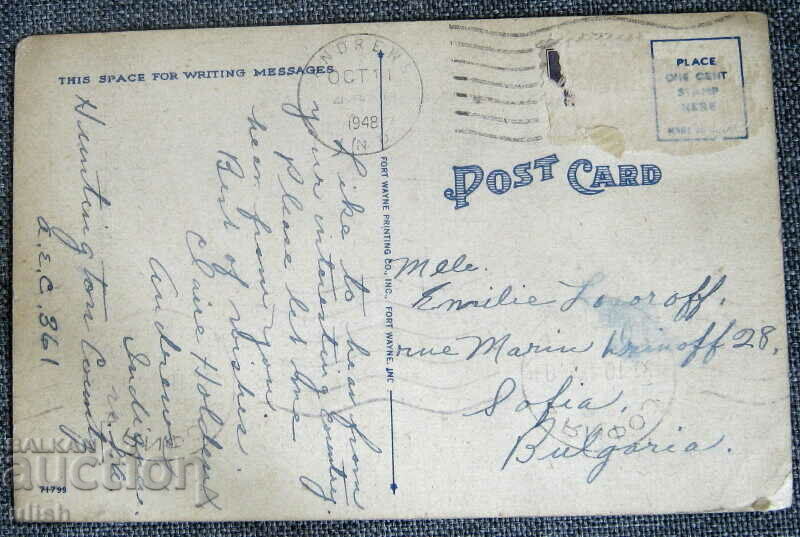 THIS SPACE FOR WRITING MESSAGES
Like to hear from
your interesting country.
Please let me
hear from you
Best of wishes.
Claire Holdenf
Andrews
Indiana.
Huntington County
a.E.C. 361
ANDREWS
OCT 11
1948
IN
PLACE
ONE CENT
STAMP
HERE
POST CARD
FORT WAYNE PRINTING CO., INC., FORT WAYNE, IND
Mlle.
Emilie Lozoroff.
rue Marin Drinoff 28,
Sofia,
Bulgaria.
71799
BALKAN
auction